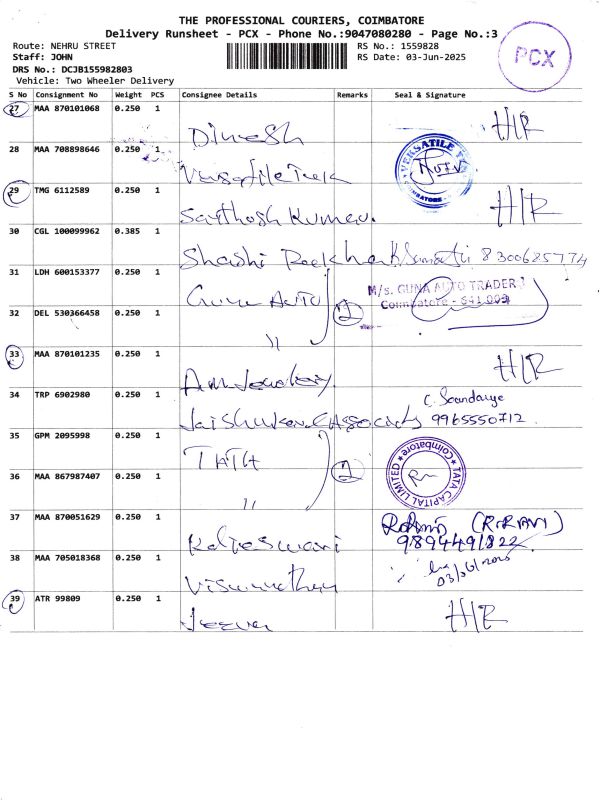 THE PROFESSIONAL COURIERS, COIMBATORE
Delivery Runsheet - PCX - Phone No.:9047080280 - Page No.:3
Route: NEHRU STREET RS No.: 1559828
Staff: JOHN RS Date: 03-Jun-2025
DRS No.: DCJB155982803
Vehicle: Two Wheeler Delivery
PCX
S No Consignment No Weight PCS Consignee Details Remarks Seal & Signature
27 MAA 870101068 0.250 1 Dinesh H/R
28 MAA 708898646 0.250 1
29 TMG 6112589 0.250 1 Santhosh Kumar. H/R
30 CGL 100099962 0.385 1 Shashi 8300685774
31 LDH 600153377 0.250 1 Guna Auto M/s. GUNA AUTO TRADER
Coimbatore - 641 009
32 DEL 530366458 0.250 1 " 2
33 MAA 870101235 0.250 1 H/R
34 TRP 6902980 0.250 1 C. Soundarya
9965550712
35 GPM 2095998 0.250 1 TATA TATA CAPITAL LIMITED Coimbatore
36 MAA 867987407 0.250 1 " 2
37 MAA 870051629 0.250 1 (R.RAVI)
9894491822
38 MAA 705018368 0.250 1 03/06/2025
39 ATR 99809 0.250 1 Jeeva H/R